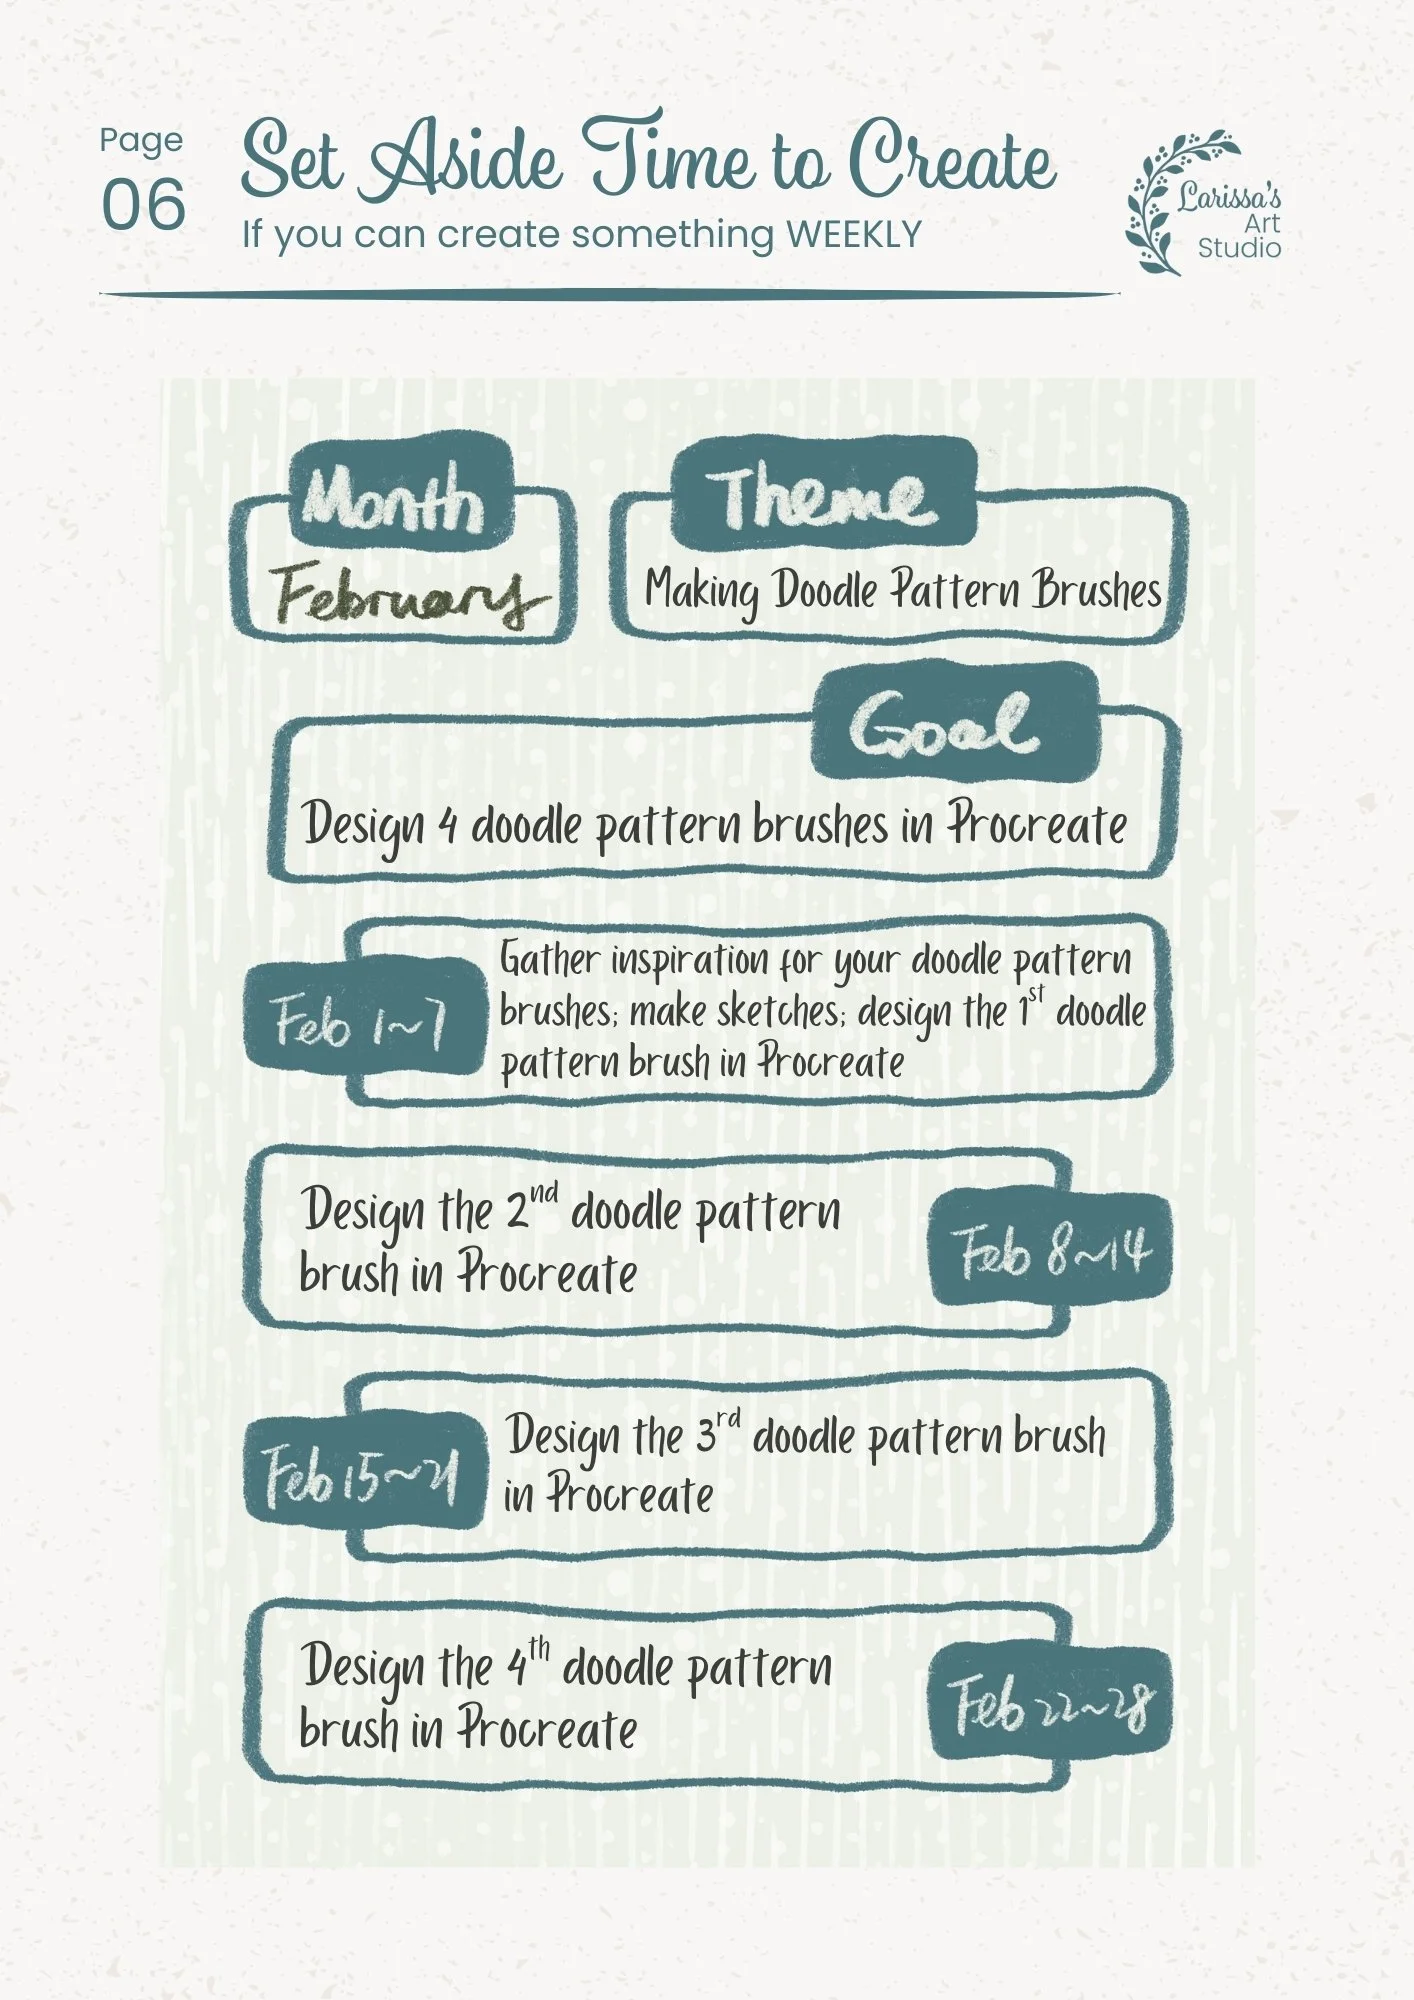 Page
06
Set Aside Time to Create
If you can create something WEEKLY
Larissa's
Art
Studio
Month
February
Theme
Making Doodle Pattern Brushes
Goal
Design 4 doodle pattern brushes in Procreate
Feb 1~7
Gather inspiration for your doodle pattern
brushes; make sketches; design the 1st doodle
pattern brush in Procreate
Design the 2nd doodle pattern
brush in Procreate
Feb 8~14
Feb 15~21
Design the 3rd doodle pattern brush
in Procreate
Design the 4th doodle pattern
brush in Procreate
Feb 22~28